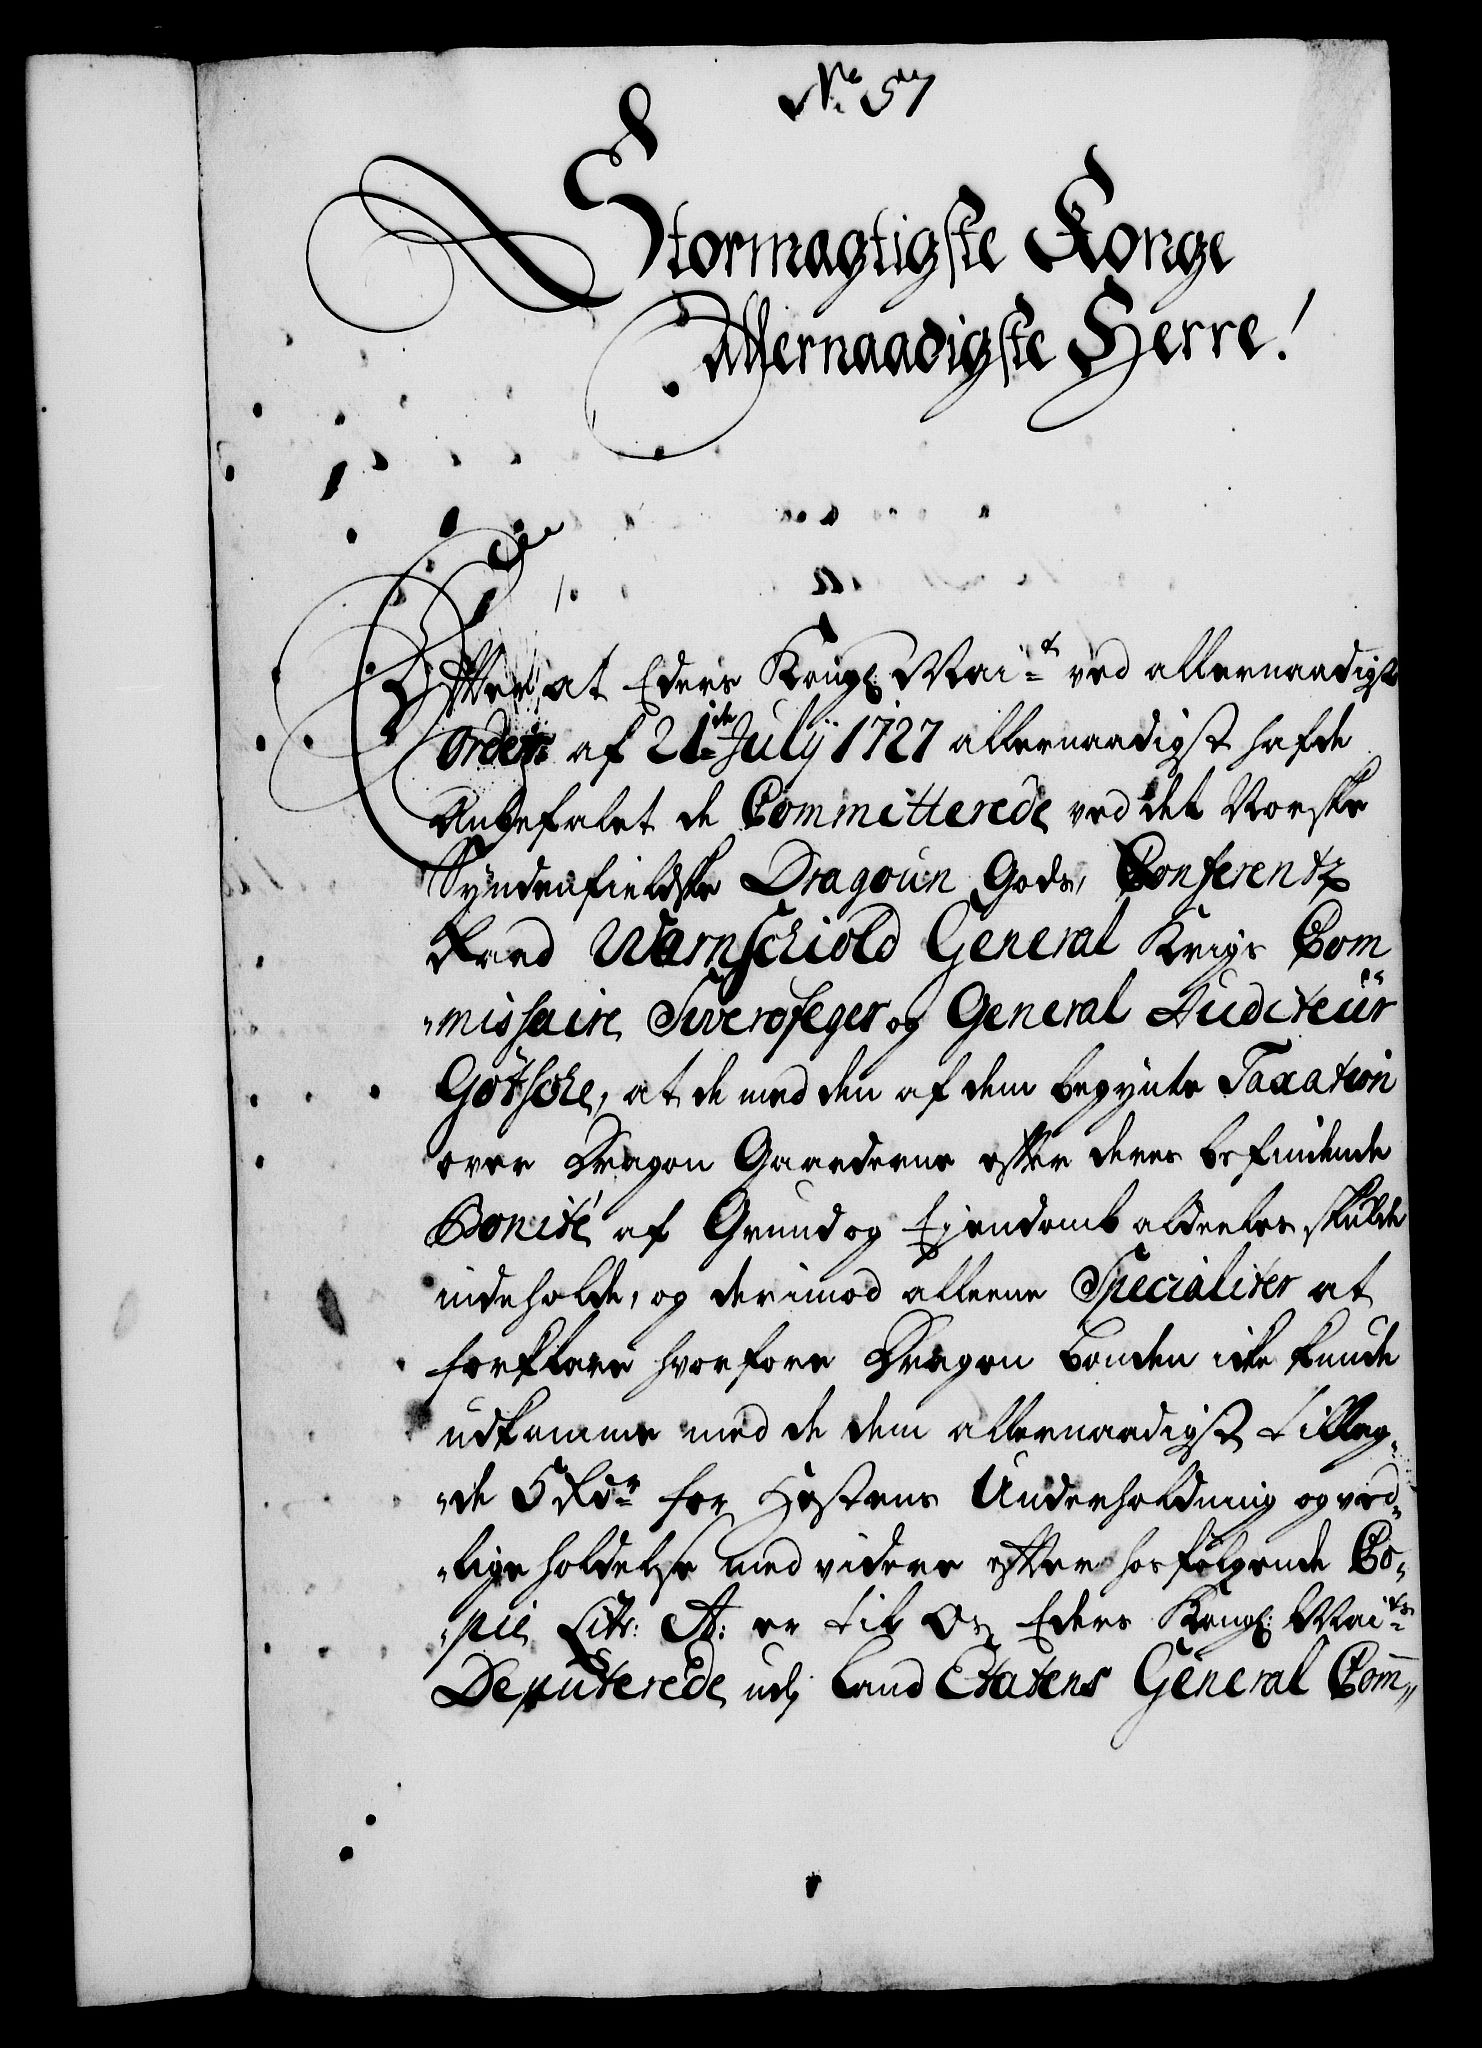 No 57
Stormagtigste Konge
Allernaadigste Herre!
Efter at Eders Kongl: Mait ved allernaadigst
Ordre af 21de Julÿ 1727 allernaadigst hafde
Anbefalet de Committerede ved det Norske
Syndenfieldske Dragoun Gods, Conferentz
Raad Warnschiold General Krigs Com
missaire Sverdfeger og General Auditeür
Götsche, at de med den af dem begynte Taxation
over Dragon Gaarderne efter deres befindende
Bonité af Grund og Ejendomb aldeeles skulde
indeholde, og derimod alleene Specialiter at
forklare hvorfore Dragon bonden icke kunde
udkomme med de dem allernaadigst tillag,
de 5 Rdr for Hestens Underholdning og ved-
lige holdelse med videre efter hosfølgende Co-
pie Litr: A: er til Os Eders Kongl: Maits
Deputerede udj Land Etatens General Com̄